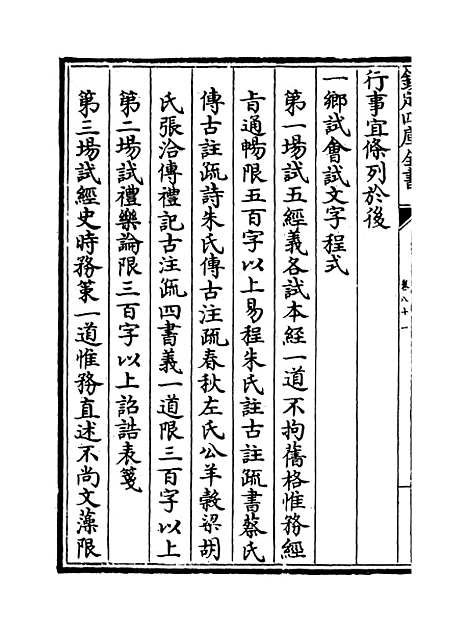 欽定四庫全書
卷八十一
行事宜條列於後
一鄉試會試文字程式
第一場試五經義各試本經一道不拘舊格惟務經
旨通暢限五百字以上易程朱氏註古註疏書蔡氏
傳古註疏詩朱氏傳古注疏春秋左氏公羊穀梁胡
氏張洽傳禮記古注疏四書義一道限三百字以上
第二場試禮樂論限三百字以上詔誥表箋
第三場試經史時務策一道惟務直述不尚文藻限